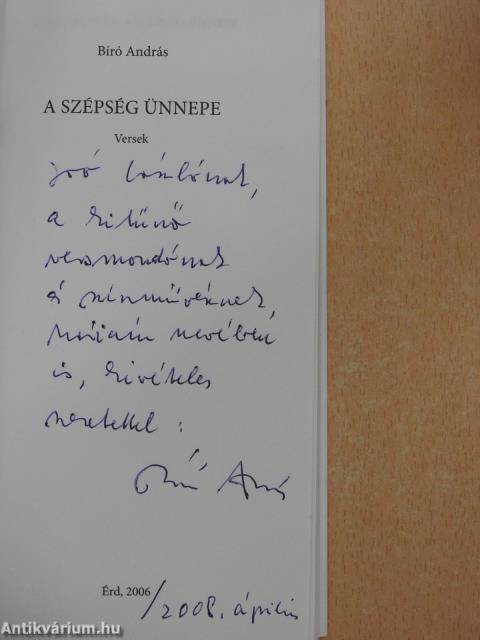 Bíró András
A SZÉPSÉG ÜNNEPE
Versek
Joó Lászlónak,
a kitűnő
versmondónak
és színművésznek,
nevében
is, kivételes
szeretettel:
Bíró András
Érd, 2006
/2008. április
Antikvárium.hu